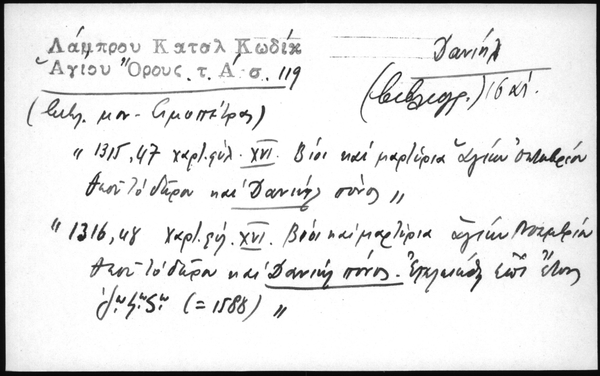 Λάμπρου Κατάλ Κωδίκ
Ἁγίου Ὄρους. τ. Α΄ σ. 119
Δανιήλ
(βιβλιογρ.) 16 αἰ.
(βιβλ. μον. Σιμοπέτρας)
" 1315,47 χαρτ. φύλ. XVI. Βίοι καὶ μαρτύρια ἁγίων Ὀκτωβρίου
Θεοῦ τὸ δῶρον καὶ Δανιήλ πόνος "
" 1316,48 χαρτ. φύλ. XVI. Βίοι καὶ μαρτύρια ἁγίων Νοεμβρίου
Θεοῦ τὸ δῶρον καὶ Δανιήλ πόνος. ἐπὶ ἔτους
(= 1588) "